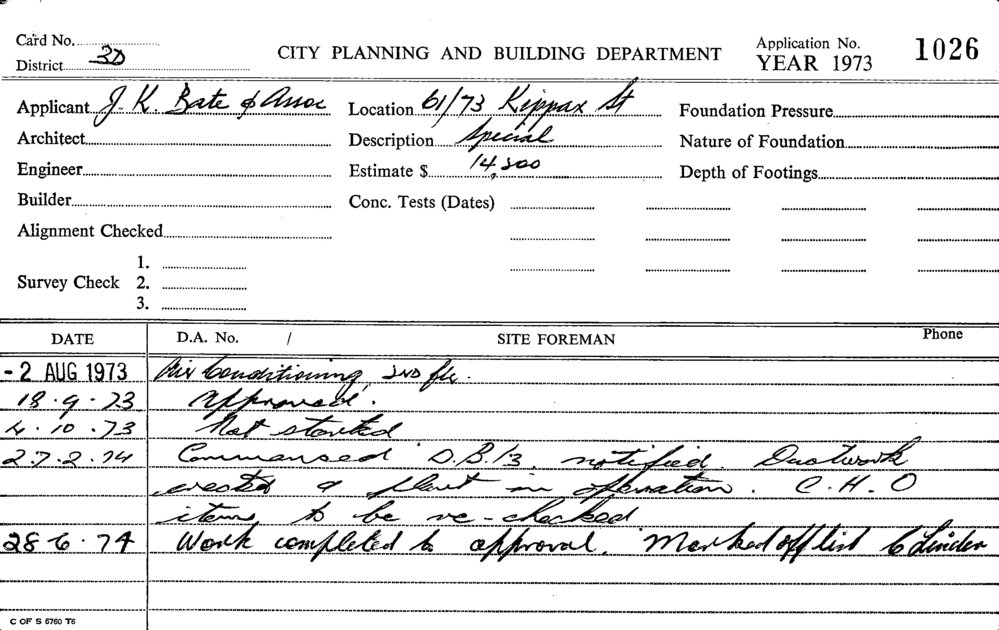 Card No.
District 3D
CITY PLANNING AND BUILDING DEPARTMENT
Application No. 1026
YEAR 1973
Applicant J. K. Bate & Assoc
Location 61/73 Kippax St
Foundation Pressure
Architect
Description Special
Nature of Foundation
Engineer
Estimate $ 14,200
Depth of Footings
Builder
Conc. Tests (Dates)
Alignment Checked
Survey Check 1.
2.
3.
DATE D.A. No. / SITE FOREMAN Phone
- 2 AUG 1973 Air Conditioning, 2nd flr.
18.9.73 Approved.
4.10.73 Not started
27.2.74 Commenced D.B.13. notified. Ductwork
erected & plant in operation. C.H.O
items to be re-checked
28 6.74 Work completed to approval. Marked off list
C OF S 6760 T6